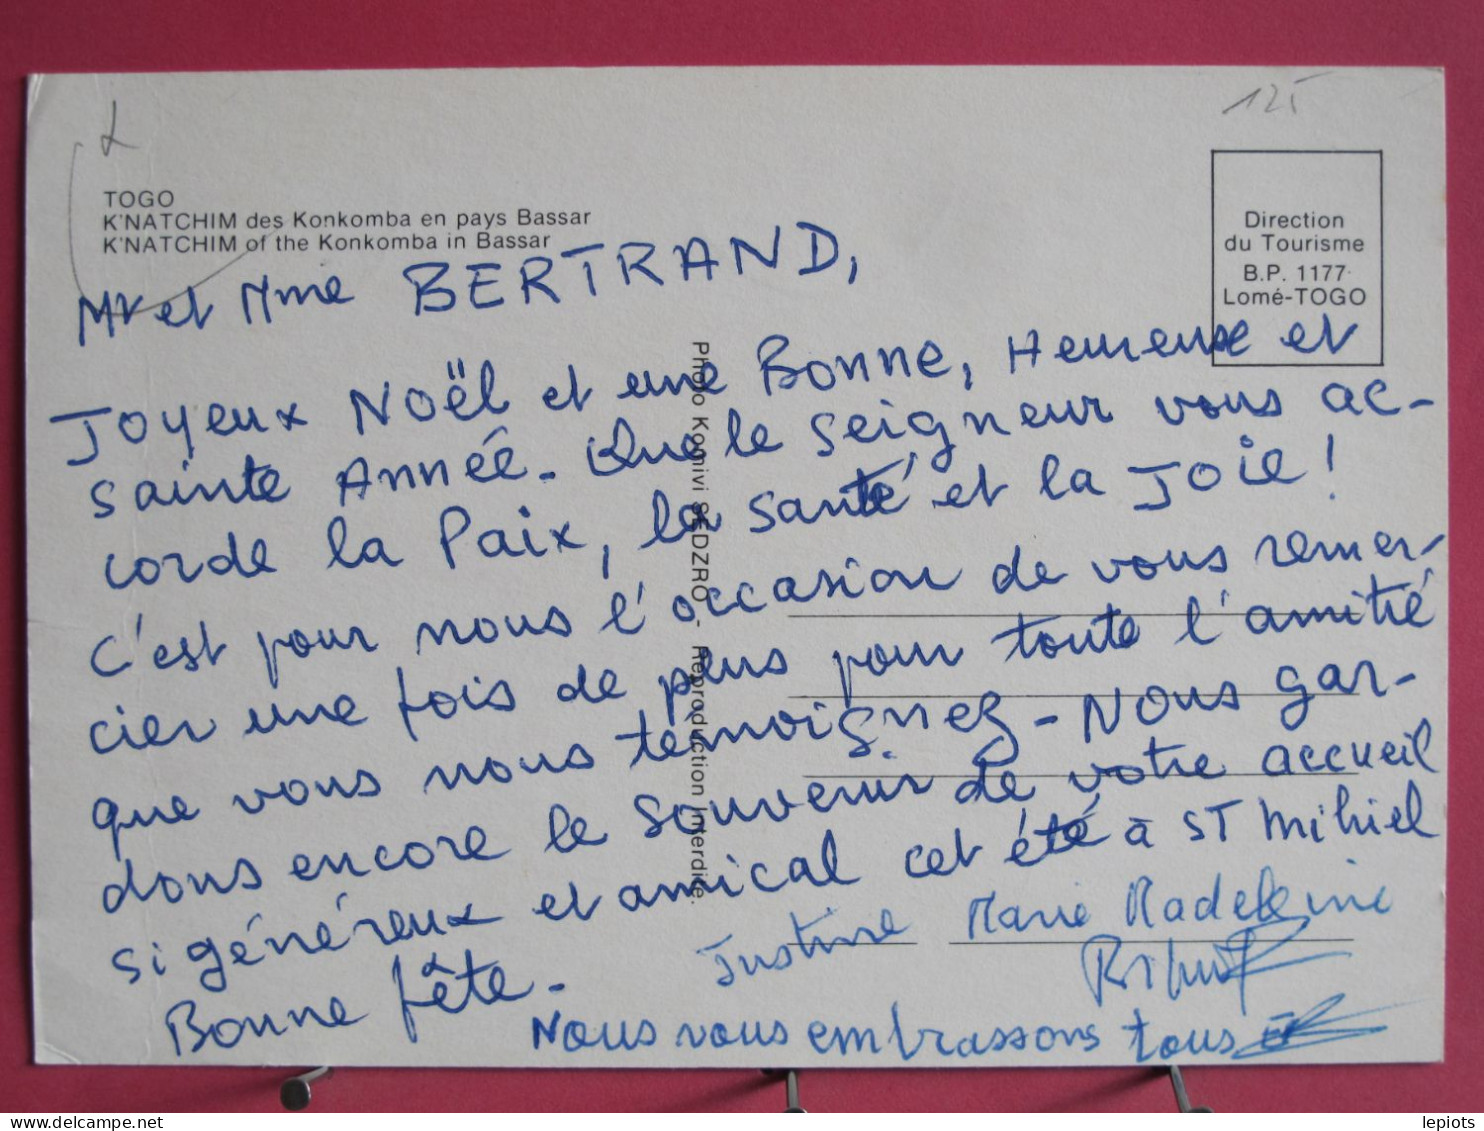 125
TOGO
K'NATCHIM des Konkomba en pays Bassar
K'NATCHIM of the Konkomba in Bassar
Direction
du Tourisme
B.P. 1177
Lomé-TOGO
Photo Komivi SEDZRO, Reproduction Interdite.
Mr et Mme BERTRAND,
Joyeux Noël et une Bonne, Heureuse et
sainte Année. Que le seigneur vous ac-
corde la Paix, la santé et la Joie !
C'est pour nous l'occasion de vous remer-
cier une fois de plus pour toute l'amitié
que vous nous témoignez - Nous gar-
dons encore le souvenir de votre accueil
si généreux et amical cet été à ST Mihiel
Bonne fête.
Justine Marie Madeleine
Nous vous embrassons tous
lepiots